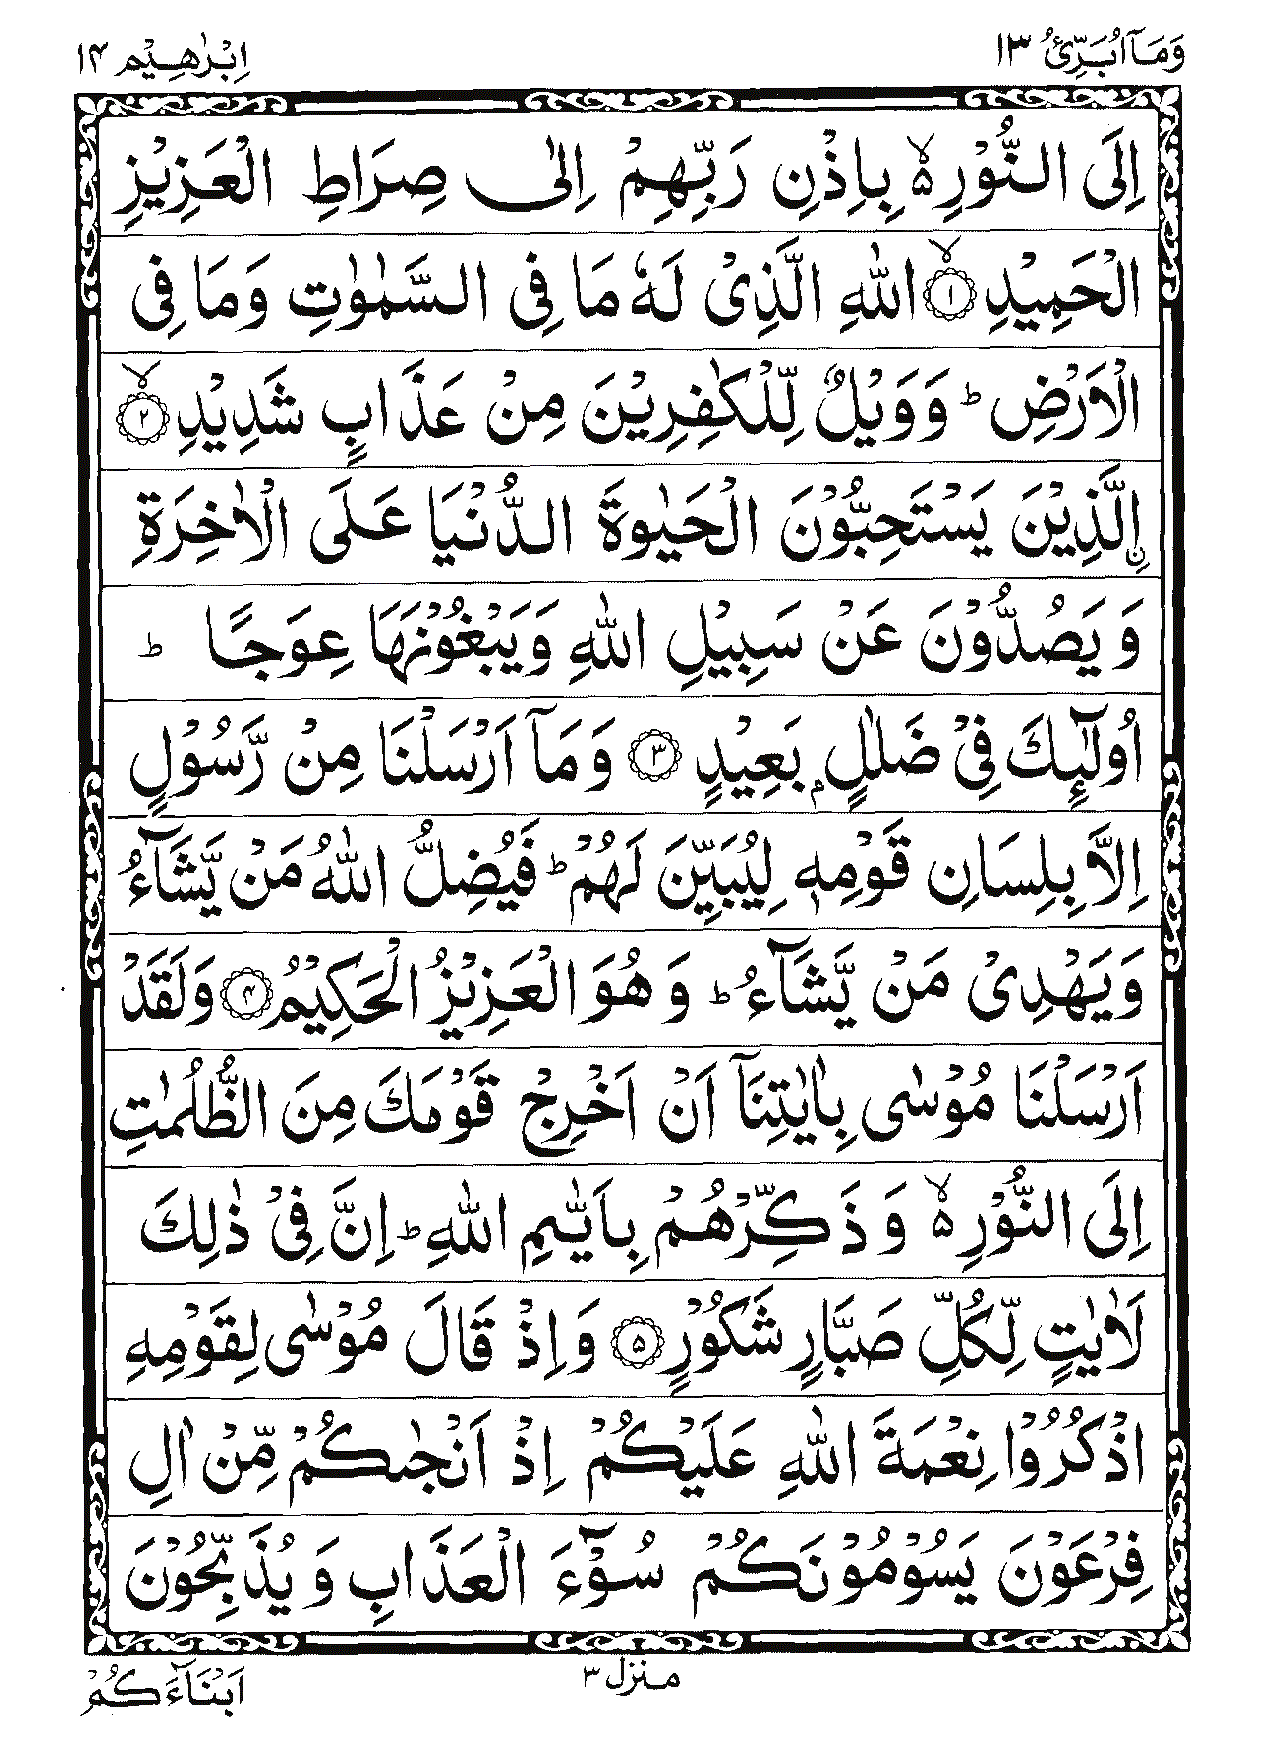 وَمَآ اُبَرِّئُ ١٣
اِبْرٰهِيْم ١۴
اِلَى النُّوْرِ ۙ۬ بِاِذْنِ رَبِّهِمْ اِلٰى صِرَاطِ الْعَزِيْزِ
الْحَمِيْدِ ۙ﴿١﴾ اللّٰهِ الَّذِىْ لَهٗ مَا فِى السَّمٰوٰتِ وَمَا فِى
الْاَرْضِ ؕ وَوَيْلٌ لِّلْكٰفِرِيْنَ مِنْ عَذَابٍ شَدِيْدِ ۙ﴿٢﴾
اِ۟لَّذِيْنَ يَسْتَحِبُّوْنَ الْحَيٰوةَ الدُّنْيَا عَلَى الْاٰخِرَةِ
وَ يَصُدُّوْنَ عَنْ سَبِيْلِ اللّٰهِ وَيَبْغُوْنَهَا عِوَجًا ؕ
اُولٰٓئِكَ فِىْ ضَلٰلٍۭ بَعِيْدٍ ﴿٣﴾ وَمَآ اَرْسَلْنَا مِنْ رَّسُوْلٍ
اِلَّا بِلِسَانِ قَوْمِهٖ لِيُبَيِّنَ لَهُمْ ؕ فَيُضِلُّ اللّٰهُ مَنْ يَّشَآءُ
وَيَهْدِىْ مَنْ يَّشَآءُ ؕ وَ هُوَ الْعَزِيْزُ الْحَكِيْمُ ﴿۴﴾ وَلَقَدْ
اَرْسَلْنَا مُوْسٰى بِاٰيٰتِنَآ اَنْ اَخْرِجْ قَوْمَكَ مِنَ الظُّلُمٰتِ
اِلَى النُّوْرِ ۙ۬ وَ ذَكِّرْهُمْ بِاَيّٰٮمِ اللّٰهِ ؕ اِنَّ فِىْ ذٰلِكَ
لَاٰيٰتٍ لِّكُلِّ صَبَّارٍ شَكُوْرٍ ﴿۵﴾ وَاِذْ قَالَ مُوْسٰى لِقَوْمِهِ
اذْكُرُوْا نِعْمَةَ اللّٰهِ عَلَيْكُمْ اِذْ اَنْجٰٮكُمْ مِّنْ اٰلِ
فِرْعَوْنَ يَسُوْمُوْنَكُمْ سُوْٓءَ الْعَذَابِ وَ يُذَبِّحُوْنَ
منزل ٣
اَبْنَآءَكُمْ